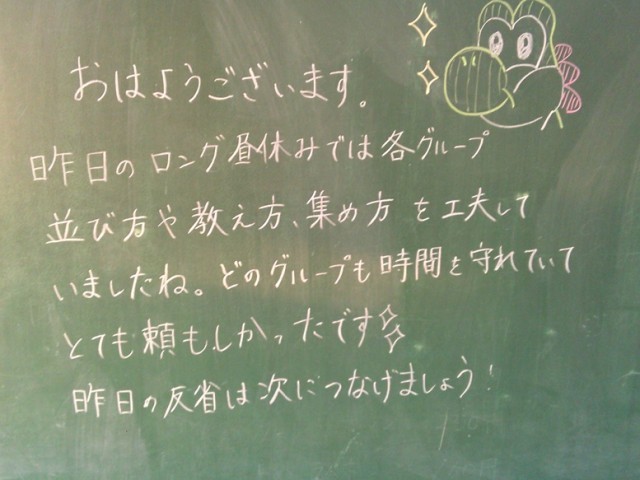 おはようございます。
昨日のロング昼休みでは各グループ
並び方や教え方、集め方を工夫して
いましたね。どのグループも時間を守れていて
とても頼もしかったです
昨日の反省は次につなげましょう！